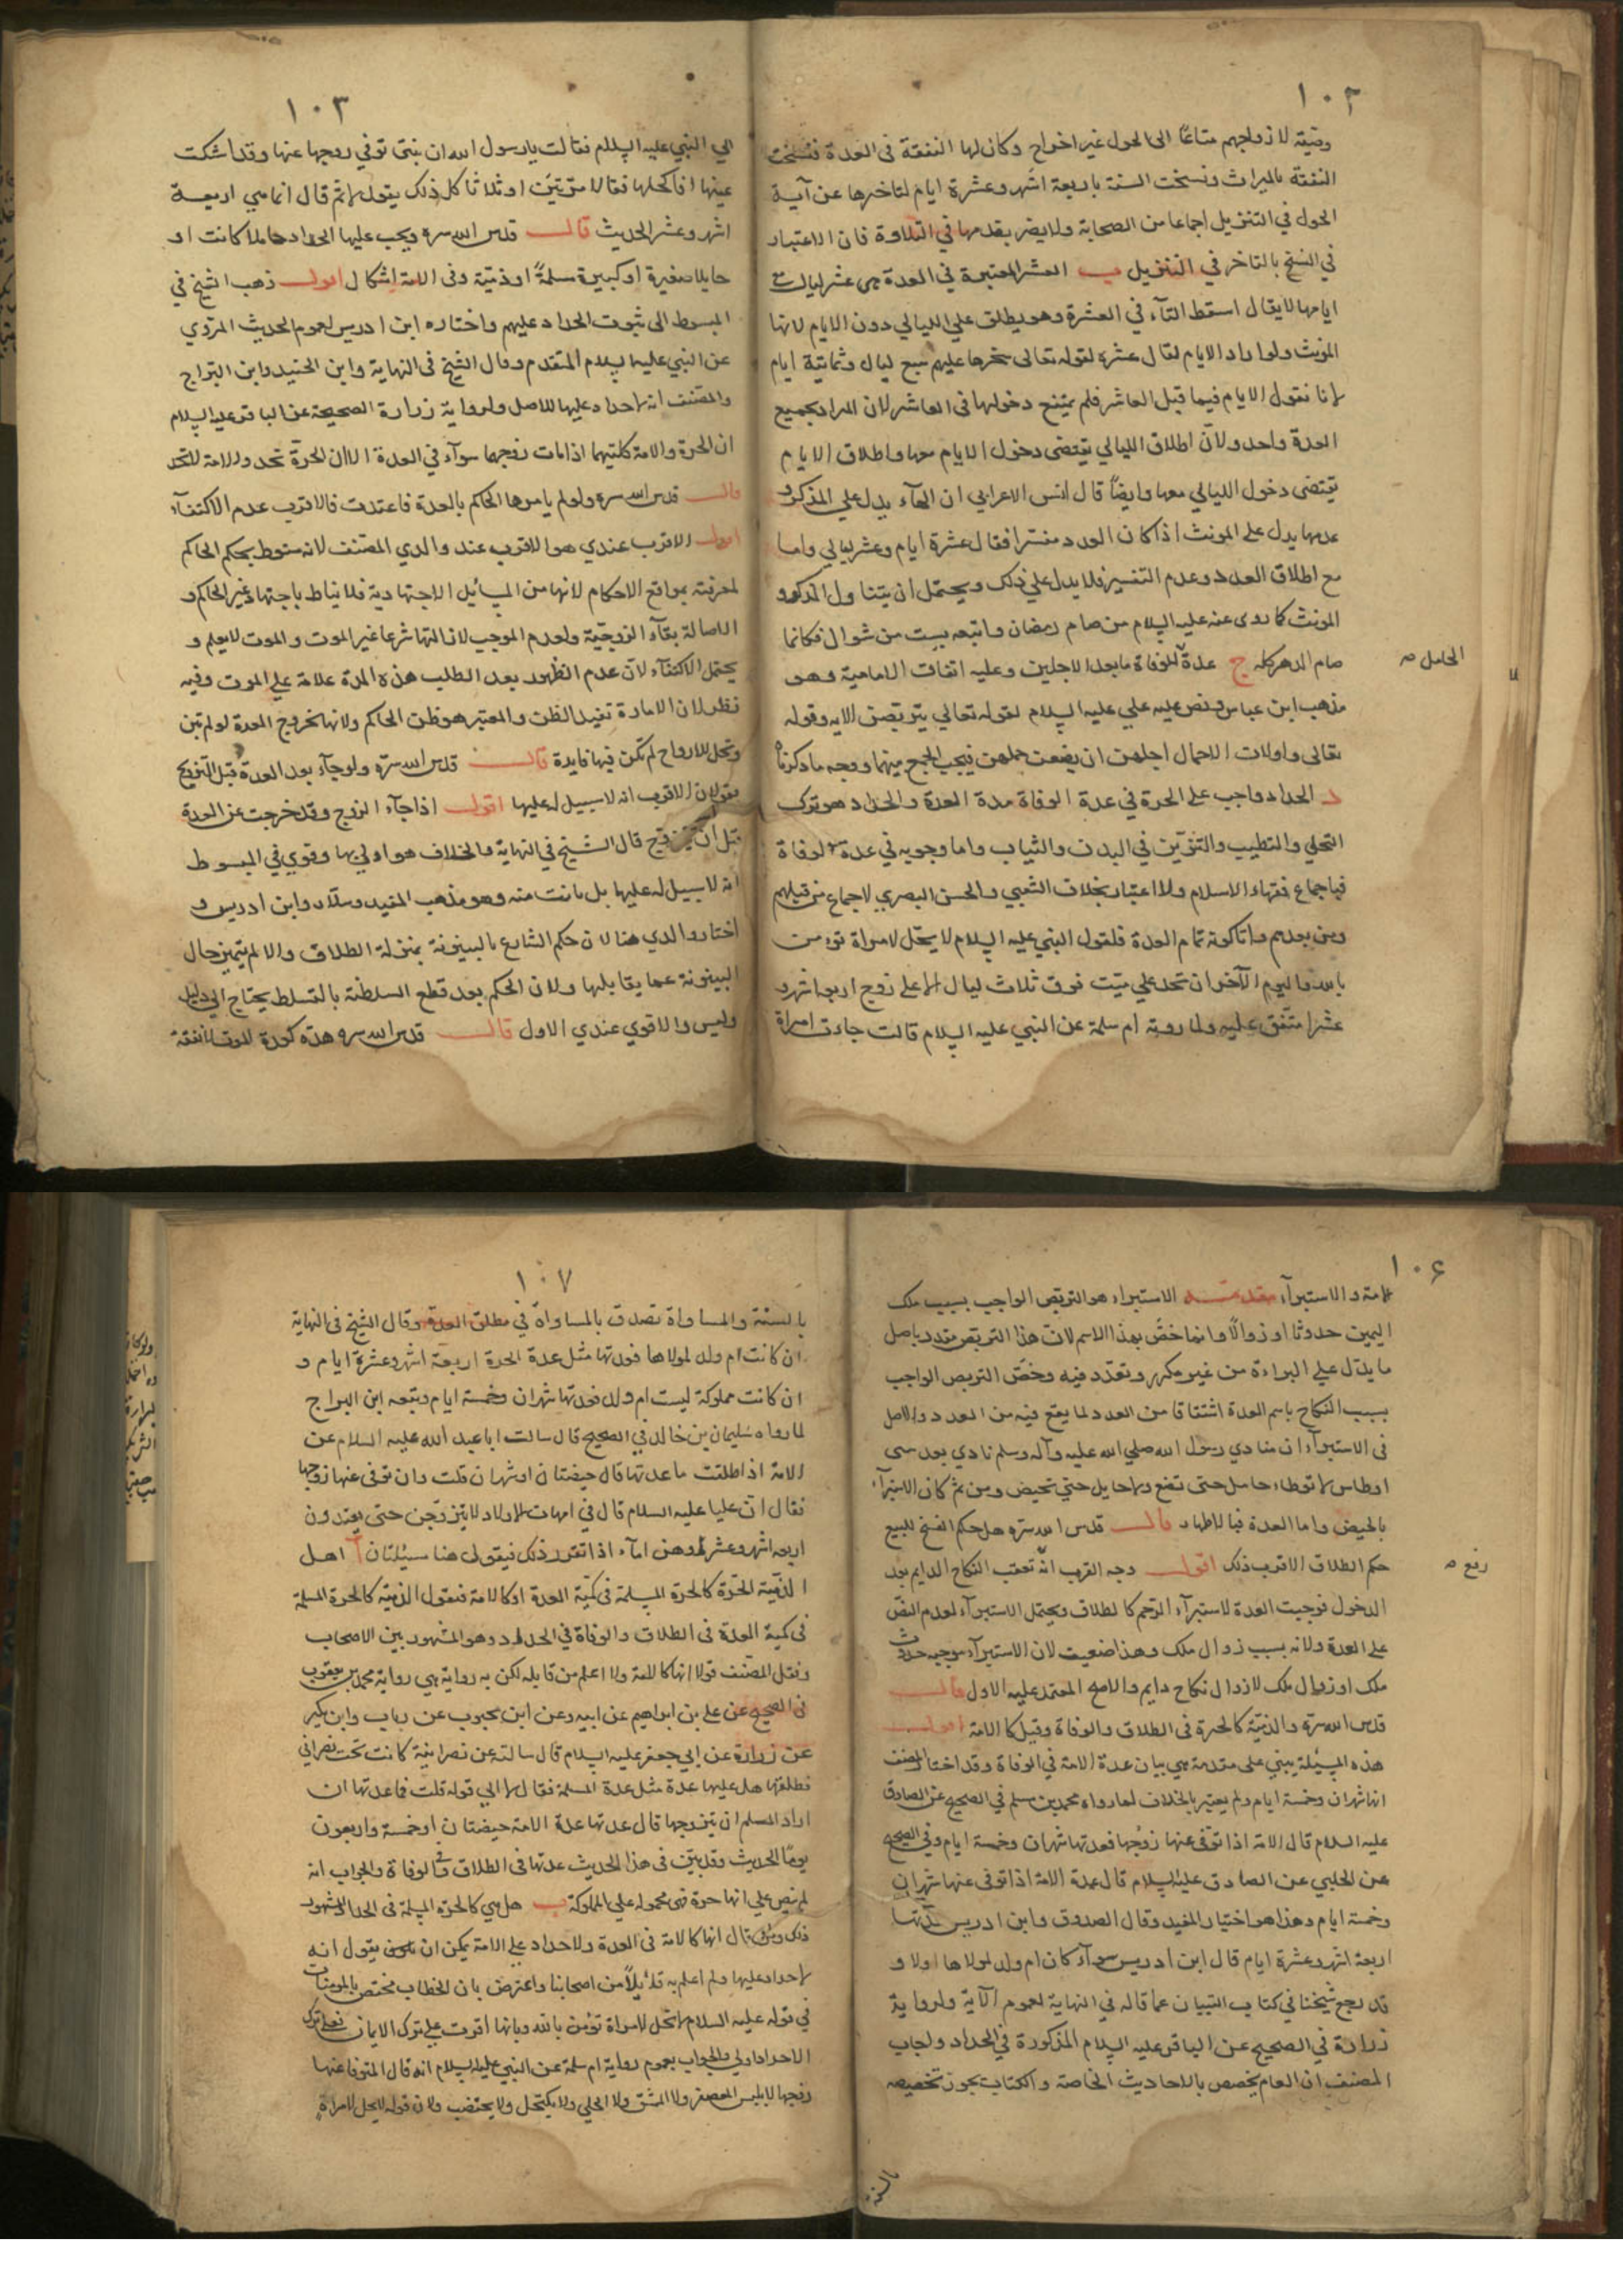 ١٠٢
وصية لازواجهم متاعًا الى الحول غير اخراج وكان لها النفقة في العدة فنسخت
النفقة بالميراث ونسخت السنة باربعة اشهر وعشرة ايام لتاخرها عن آية
الحول في التنزيل اجماعا من الصحابة ولا يضر تقدمها في التلاوة فان الاعتبار
في النسخ بالتاخر في التنزيل ب العشر المعتبرة في العدة هي عشر ليال مع
ايامها لا يقال اسقط التآء في العشرة وهو يطلق علي الليالي دون الايام لانها
المونث ولو اراد الايام لقال عشرة لقوله تعالى سخرها عليهم سبع ليال وثمانية ايام
لانا نقول الايام فيما قبل العاشر فلم يمتنع دخولها في العاشر لان المراد بجميع
العدة واحد ولان اطلاق الليالي يقتضى دخول الايام معها واطلاق الايام
يقتضى دخول الليالي معها وايضاً قال ابن الاعرابي ان الهآء يدل علي المذكر و
عدمها يدل على المونث اذا كان العدد مفسرا فقال عشرة ايام وعشر ليالي واما
مع اطلاق العدد وعدم التفسير فلا يدل علي ذلك ويحتمل ان يتناول المذكر و
المونث كما روى عنه عليه السلام من صام رمضان واتبعه بست من شوال فكانما
صام الدهر كله ج عدة الوفاة ما بعد الاجلين وعليه اتفاق الامامية وهو
الحامل صـ
مذهب ابن عباس ونص عليه علي عليه السلام لقوله تعالي يتربصن الايه وقوله
تعالى واولات الاحمال اجلهن ان يضعن حملهن فيجب الجمع بينهما ووجه ما ذكرناه
د الحداد واجب على الحرة في عدة الوفاة مدة العدة والحداد هو ترك
التحلي والتطيب والتزين في البدن والثياب واما وجوبه في عدة الوفاة
فباجماع فقهاء الاسلام ولا اعتبار بخلاف الشعبي والحسن البصري لاجماع من قبلهم
ومن بعدهم واما كونه تمام العدة فلقول النبي عليه السلام لا يحل لامراة تومن
بالله واليوم الآخر ان تحد علي ميت فوق ثلاث ليال الا على زوج اربعة اشهر و
عشرا متفق عليه ولما روته ام سلمة عن النبي عليه السلام قالت جاءت امراة
١٠٣
الي النبي عليه السلام فقالت يا رسول الله ان بنتي توفي زوجها عنها وقد اشكت
عينها افاكحلها فقال لا مرتين او ثلاثا كل ذلك يقول لا ثم قال انما هي اربعة
اشهر وعشر الحديث قال قدس الله سره ويجب عليها الحداد حاملا كانت او
حايلا صغيرة او كبيرة مسلمةً او ذمية وفي الامة اشكال اقول ذهب الشيخ في
المبسوط الى ثبوت الحداد عليهم واختاره ابن ادريس لعموم الحديث المروي
عن النبي عليه السلام المتقدم وقال الشيخ في النهاية وابن الجنيد وابن البراج
والمصنف انه لا حداد عليها للاصل ولرواية زرارة الصحيحة عن الباقر عليه السلام
ان الحرة والامة كلتيهما اذا مات زوجهما سوآء في العدة الا ان الحرة تحد والامة لا تحد
قال قدس الله سره ولو لم يامرها الحاكم بالعدة فاعتدت فالاقرب عدم الاكتفآء
اقول الاقرب عندي هو الاقرب عند والدي المصنف لانه منوط بحكم الحاكم
لمعرفته بمواقع الاحكام لانها من المسائل الاجتهادية فلا يناط باجتهاد غير الحاكم و
الاصالة بقآء الزوجية ولعدم الموجب لانتهائها شرعا غير الموت والموت لا يعلم و
يحتمل الاكتفآء لان عدم الظهور بعد الطلب هذه المدة علامة علي الموت وفيه
نظر لان الامارة تفيد الظن والمعتبر هو ظن الحاكم ولانها بخروج المدة لو لم تبن
وتحل للازواج لم تكن فيها فايدة قال قدس الله سره ولو جآء بعد العدة قبل التزويج
فقولان الاقرب انه لا سبيل له عليها اقول اذا جآء الزوج وقد خرجت عن العدة
قبل ان تتزوج قال الشيخ في النهاية والخلاف هو اولي بها وقوي في المبسوط
انه لا سبيل له عليها بل بانت منه وهو مذهب المفيد وسلار وابن ادريس و
اختار والدي هنا لان حكم الشارع بالبينونة بمنزلة الطلاق والا لم يتميز حال
البينونة عما يقابلها ولان الحكم بعد قطع السلطنة بالتسلط يحتاج الي دليل
وليس والاقوي عندي الاول قال قدس الله سره هذه كعدة الموت لا نفقة
١٠۶
لامة والاستبرآء مقدمـة الاستبراء هو التربص الواجب بسبب ملك
اليمين حدوثا او زوالًا وانما خصّ بهذا الاسم لان هذا التربص مقدر باصل
ما يدل علي البراءة من غير مكرر وتعدد فيه وخص التربص الواجب
بسبب النكاح باسم العدة اشتقاقا من العدد لما يقع فيه من العدد والاصل
في الاستبرآء ان منادي رسول الله صلي الله عليه وآله وسلم نادي بعد سبي
اوطاس لا توطاء حامل حتى تضع ولا حايل حتي تحيض ومن ثم كان الاستبرآء
بالحيض واما العدة فبالاطهار قال قدس الله سره هل حكم الفسخ للبيع
حكم الطلاق الاقرب ذلك اقول وجه القرب انه تعقب النكاح الدايم بعد
رفع صـ
الدخول فوجبت العدة لاستبرآء الرحم كالطلاق ويحتمل الاستبرآء لعدم النص
على العدة ولانه بسبب زوال ملك وهذا ضعيف لان الاستبرآء موجبه حدوث
ملك او زوال ملك لا زوال نكاح دايم والاصح المعتمد عليه الاول قال
قدس الله سره والذمية كالحرة في الطلاق والوفاة وقيل كالامة اقول
هذه المسئلة يبني على مقدمة هي بيان عدة الامة في الوفاة وقد اختار المصنف
انها شهران وخمسة ايام ولم يعتبر بالخلاف لما رواه محمد بن مسلم في الصحيح عن الصادق
عليه السلام قال الامة اذا توفي عنها زوجها فعدتها شهران وخمسة ايام وفي الصحيح
عن الحلبي عن الصادق عليه السلام قال عدة الامة اذا توفى عنها شهران
وخمسة ايام وهذا هو اختيار المفيد وقال الصدوق وابن ادريس عدتها
اربعة اشهر وعشرة ايام قال ابن ادريس سوآء كان ام ولد لمولاها او لا و
قد رجع شيخنا في كتاب التبيان عما قاله في النهاية لعموم الآية ولرواية
زرارة في الصحيح عن الباقر عليه السلام المذكورة في الحداد واجاب
المصنف ان العام يخصص بالاحاديث الخاصة والكتاب يجوز تخصيصه
بالسنة
١٠٧
بالسنة والمساواة تصدق بالمساواة في مطلق العدة وقال الشيخ في النهاية
ان كانت ام ولد لمولاها فعدتها مثل عدة الحرة اربعة اشهر وعشرة ايام و
ان كانت مملوكة ليست ام ولد فعدتها شهران وخمسة ايام وتبعه ابن البراج
لما رواه سليمان بن خالد في الصحيح قال سالت ابا عبد الله عليه السلام عن
الامة اذا طلقت ما عدتها قال حيضتان او شهران قلت وان توفى عنها زوجها
فقال ان عليا عليه السلام قال في امهات الاولاد لا يتزوجن حتى يعتددن
اربعة اشهر وعشرا وهن امآء اذا تقرر ذلك فيقول هنا مسئلتان آ اهل
الذمية الحرة كالحرة المسلمة في كمية العدة او كالامة فنقول الذمية كالحرة المسلمة
في كمية العدة في الطلاق والوفاة في الحداد وهو المشهور بين الاصحاب
ونقل المصنف قولا انها كالامة ولا اعلم من قايله لكن به رواية هي رواية محمد بن يعقوب
في الصحيح عن علي بن ابراهيم عن ابيه وعن ابن محبوب عن رياب وابن بكير
عن زرارة عن ابي جعفر عليه السلام قال سالته عن نصرانية كانت تحت نصراني
فطلقها هل عليها عدة مثل عدة المسلمة فقال لا الي قوله قلت فما عدتها ان
اراد المسلم ان يتزوجها قال عدتها عدة الامة حيضتان او خمسة واربعون
يومًا الحديث وقد بين في هذا الحديث عدتها في الطلاق والوفاة والجواب انه
لم ينص علي انها حرة فهي محمولة علي المملوكة ب هل هي كالحرة المسلمة في الحداد المشهور
ذلك ومن قال انها كالامة في العدة ولا حداد على الامة يمكن ان يقول انه
لا حداد عليها ولم اعلم به قائلاً من اصحابنا واعترض بان الخطاب مختص بالمومنات
في قوله عليه السلام لا تحل لامراة تؤمن بالله وبانها اقرت علي ترك الايمان فعلي ترك
الاحداد اولي والجواب بعموم رواية ام سلمة عن النبي عليه السلام انه قال المتوفا عنها
زوجها لا يلبس المعصفر ولا الممشق ولا الحلي ولا يكتحل ولا يختضب ولان قوله لا يحل لامراة